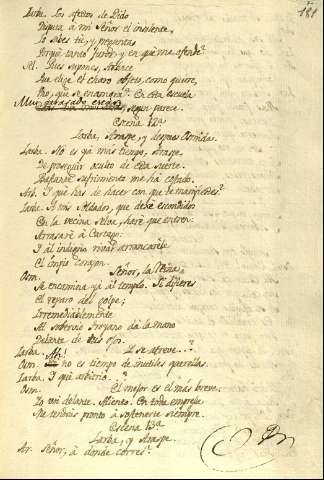 181
Iarba. Los afectos de Dido
Disputa à mi Señor el insolente,
Lo sabes tù, y preguntas
Porquè tanto furor, y en què me ofende?
Sel. Pues supones, Arbace
Que elige el claro objeto, como quiere,
No, que se enamora? En esta escuela
segun parece.
Escena 12ª
Iarba, Araspe, y despues Osmida.
Iarba. No es yà mas tiempo, Araspe
De proseguir oculto de esta suerte.
Bastante sufrimiento me hà costado.
Ars. I què has de hacer con que te manifiestes?
Iarba. A mis soldados, que dexè escondidos
En la vecina selva, harè que entren:
Arrasarè à Cartago:
I al indigno rival arrancarèle
El impio corazon.
Osm. Señor, la Reina
Se encamina yà al templo. Si difieres
El reparo del golpe;
Irremediablemente
Al sobervio Troyano dà la mano
Delante de tus ojos.
Iarba. Ah! I se atreve...?
Osm. no es tiempo de inutiles querellas.
Iarba. I què arbitrio..?
Osm. El mejor es el mas breve.
Yo voi delante. Aliento. En toda empresa
Me tendràs pronto à sostenerte siempre.
Escena 13ª
Iarba, y Araspe.
Ar. Señor, à donde corres?